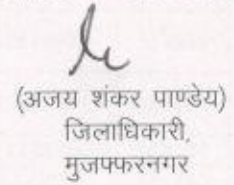 (अजय शंकर पाण्डेय)
जिलाधिकारी,
मुजफ्फरनगर